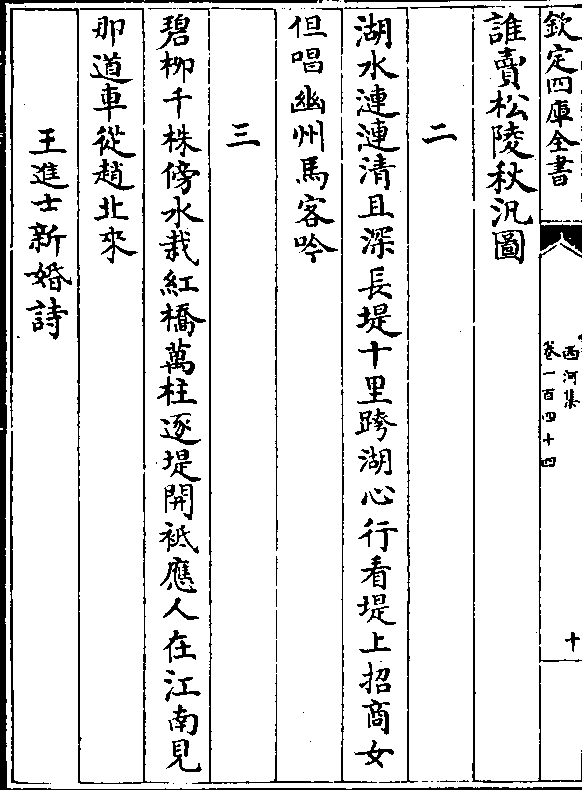 欽定四庫全書
西河集
卷一百四十四
十
誰賣松陵秋汎圖
二
湖水漣漣清且深長堤十里跨湖心行看堤上招商女
但唱幽州馬客吟
三
碧柳千株傍水栽紅橋萬柱逐堤開袛應人在江南見
那道車從趙北來
王進士新婚詩